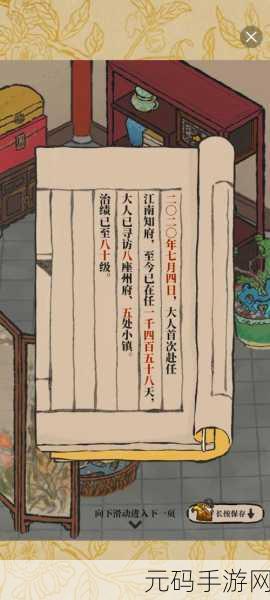 二〇二〇年七月四日，大人首次赴任
江南知府，至今已在任一千四百五十八天，
大人已寻访八座州府、五处小镇。
治绩已至八十级。
向下滑动进入下一页
长按保存
元码手游网